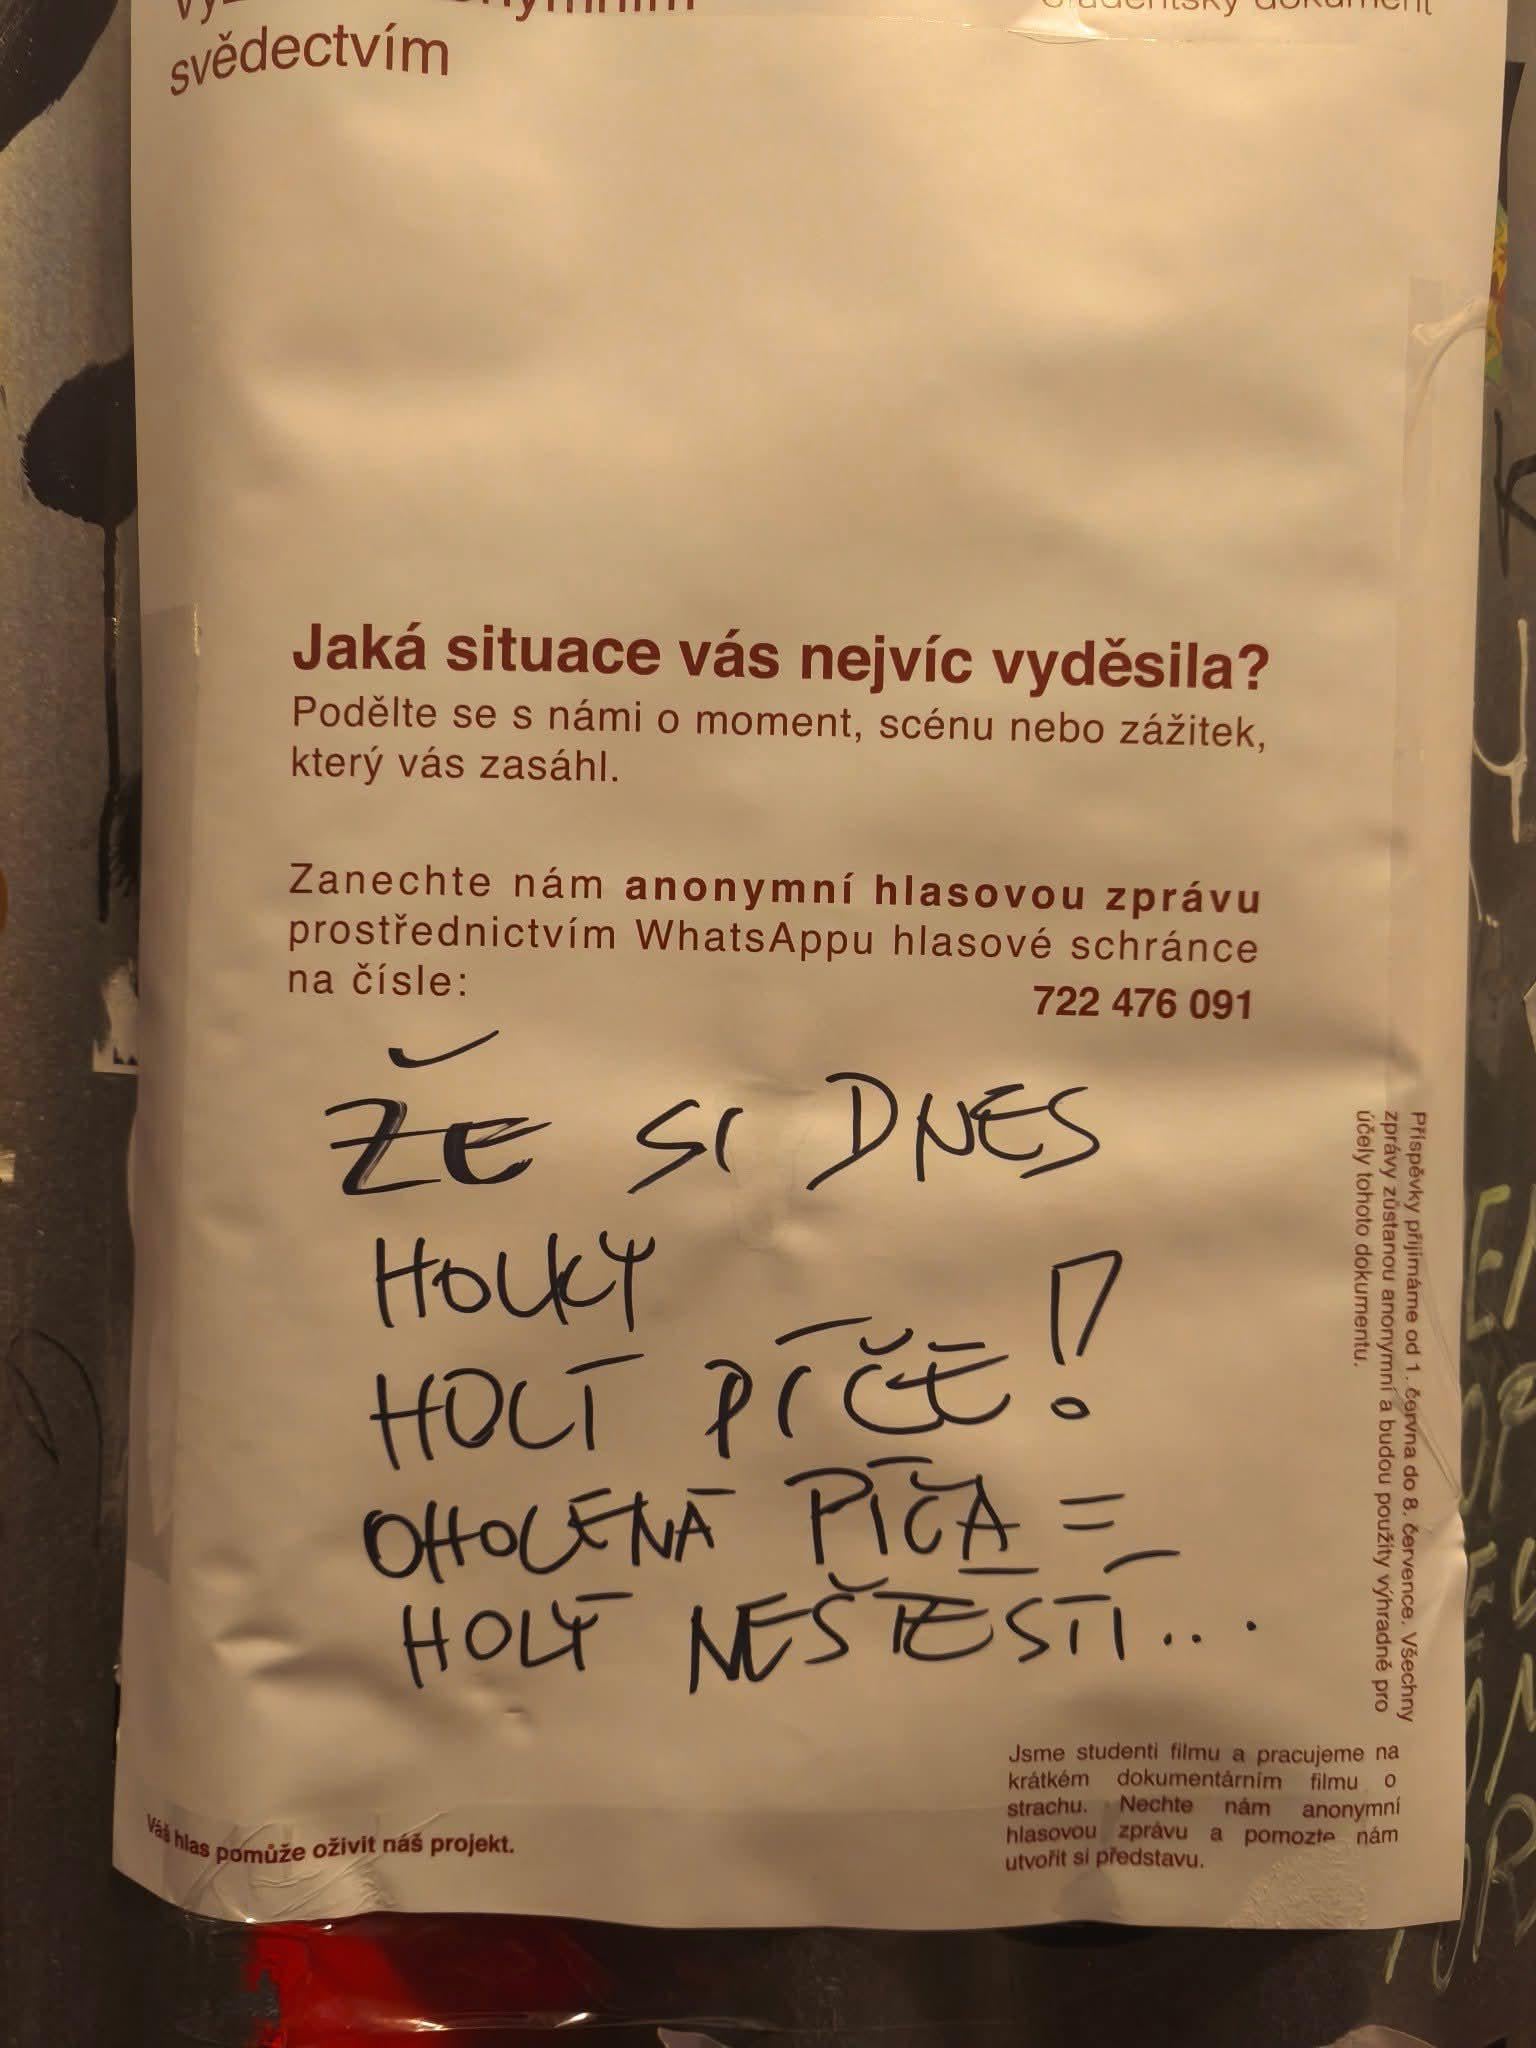 svědectvím
Studentský dokument
Jaká situace vás nejvíc vyděsila?
Podělte se s námi o moment, scénu nebo zážitek,
který vás zasáhl.
Zanechte nám anonymní hlasovou zprávu
prostřednictvím WhatsAppu hlasové schránce
na čísle:
722 476 091
ŽE SI DNES
HOLKY
HOLÍ PÍČE!
OHOLENÁ PÍČA =
HOLÝ NEŠTĚSTÍ...
Příspěvky přijímáme od 1. června do 8. července. Všechny
zprávy zůstanou anonymní a budou použity výhradně pro
účely tohoto dokumentu.
Jsme studenti filmu a pracujeme na
krátkém dokumentárním filmu o
strachu. Nechte nám anonymní
hlasovou zprávu a pomozte nám
utvořit si představu.
Váš hlas pomůže oživit náš projekt.